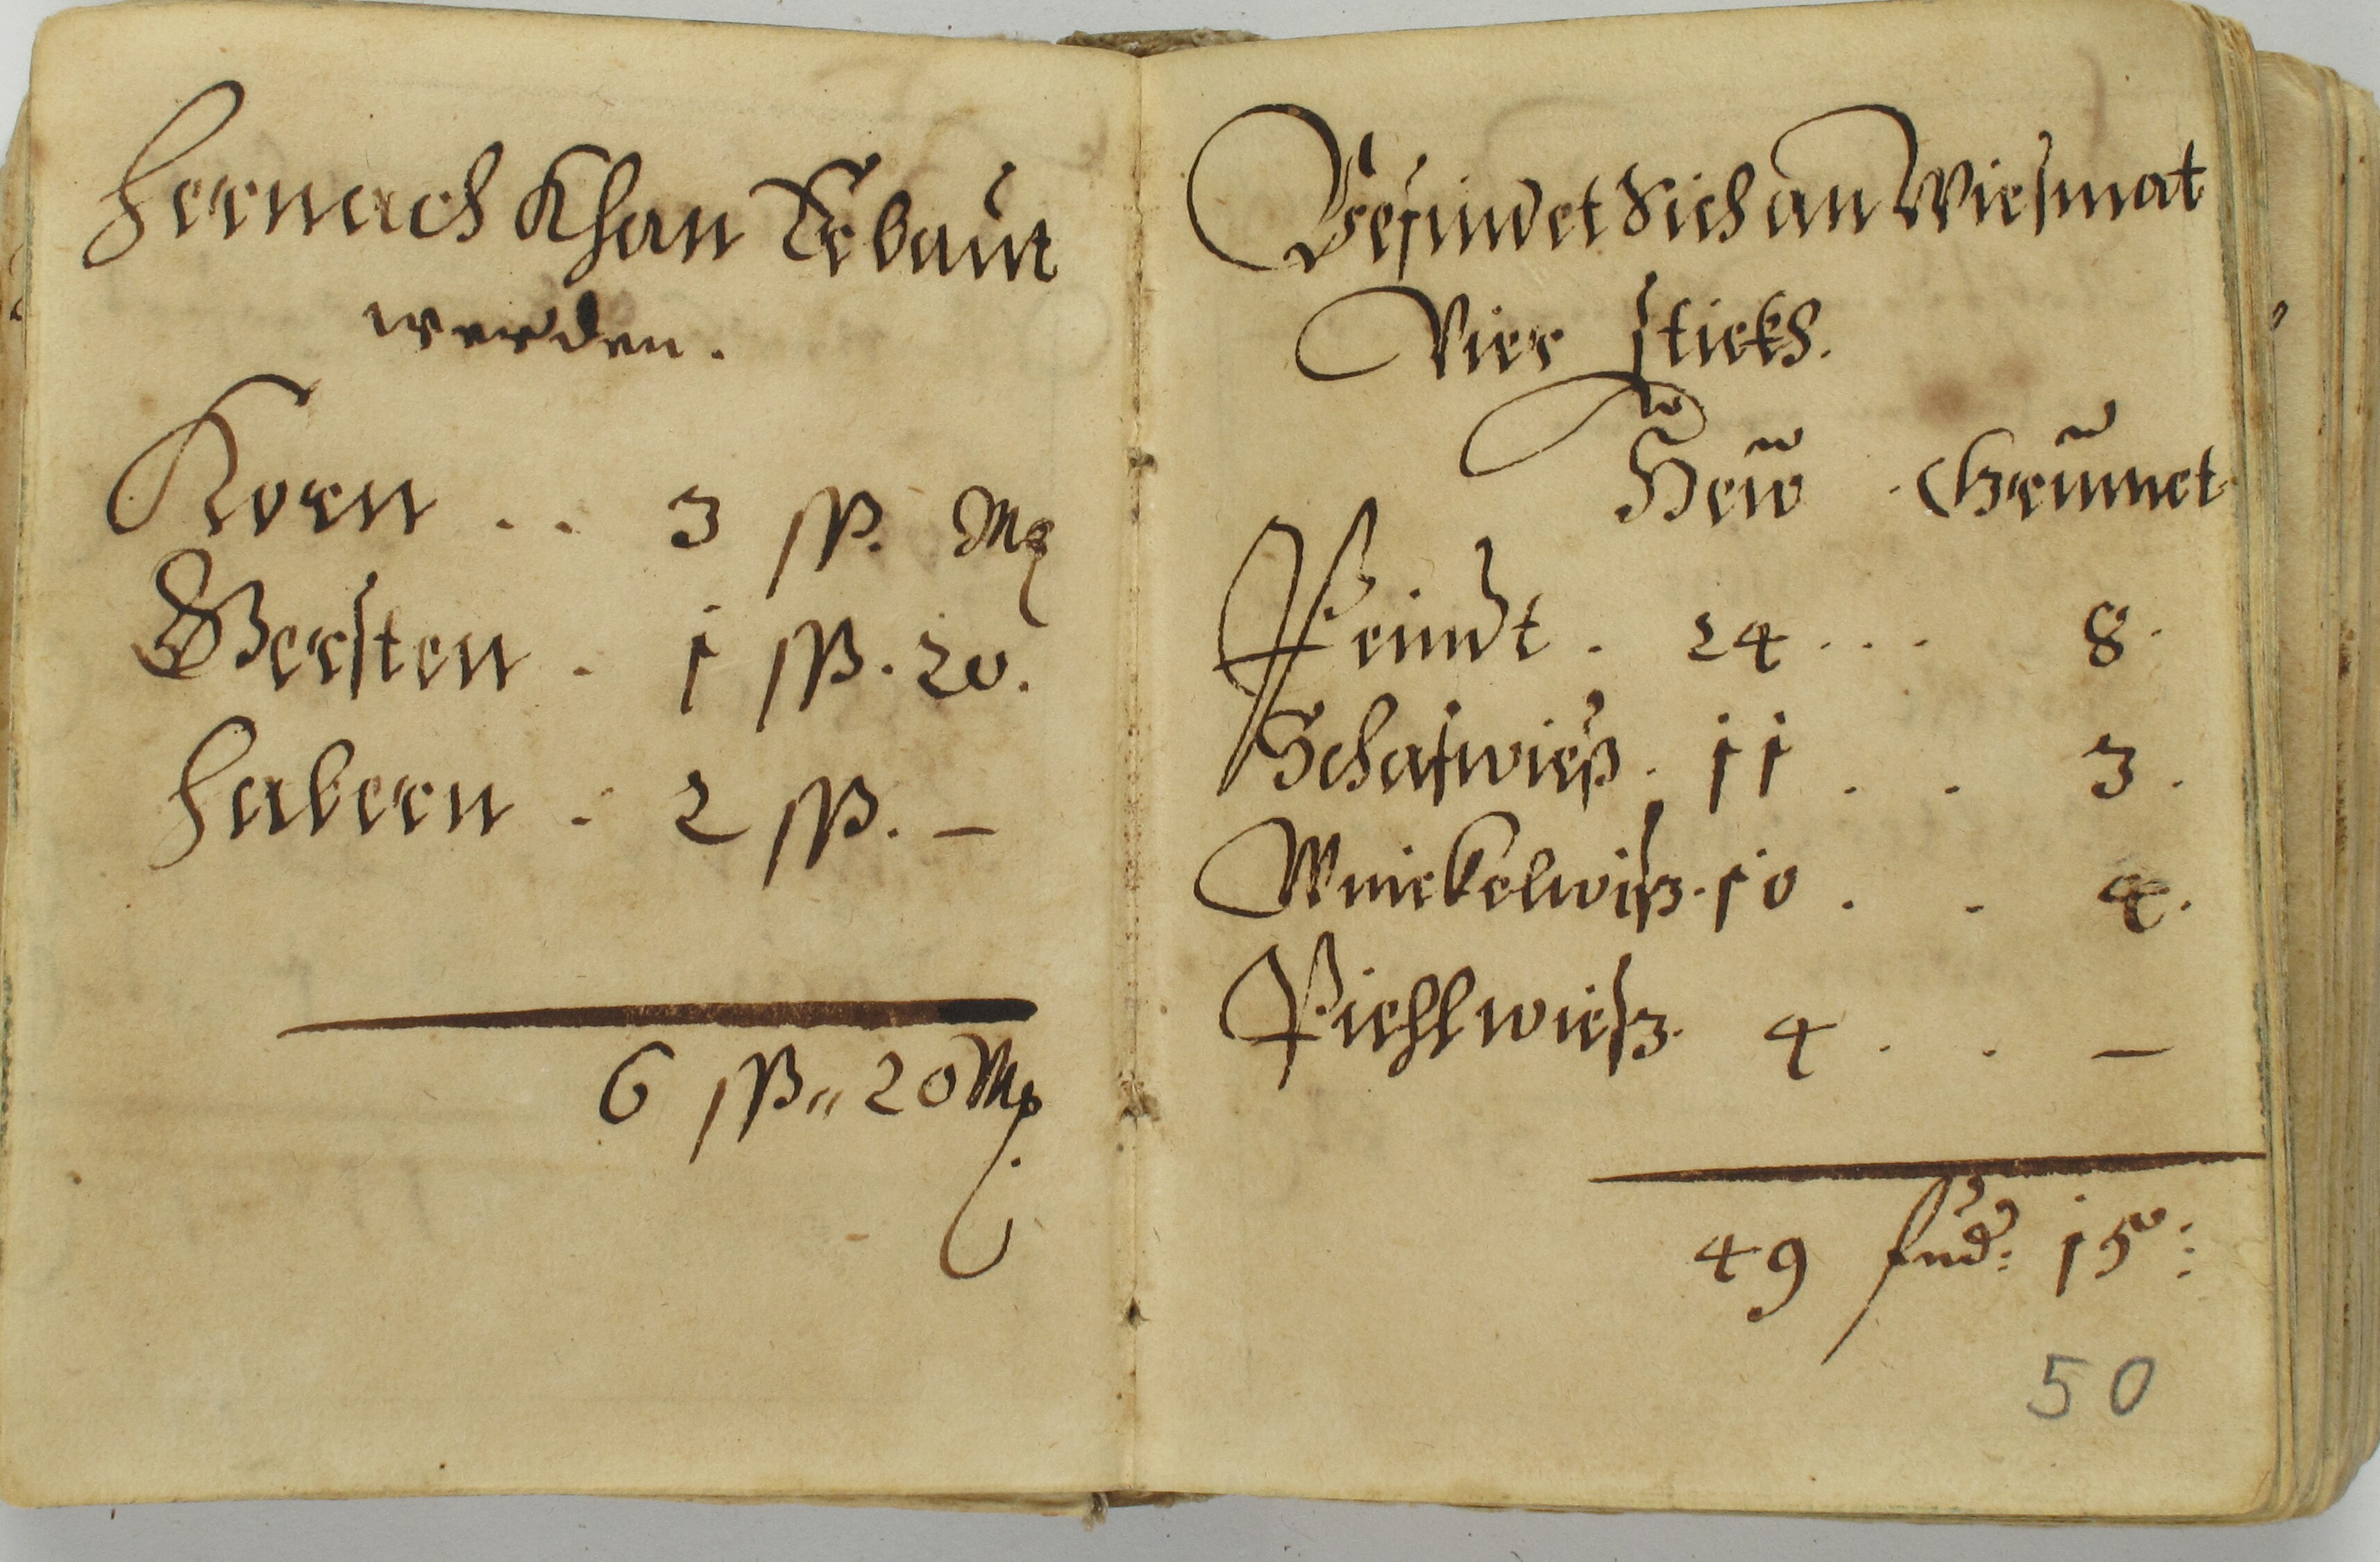 Hernach Khan Erbaut
werden.
Korn . . 3 ſß. Mz
Gersten . 1 ſß. 20.
Habern . 2 ſß. –
6 ſß„ 20 Mz
Befindet Sich an Wiesmat
Vier stickh.
Hew . Grummet
Peindt . 24 . . . 8.
Schafwieß . 11 . . 3.
Winckelwiß. 10 . . 4.
Piehlwieß. 4 . . –
49 fud: 15:
50